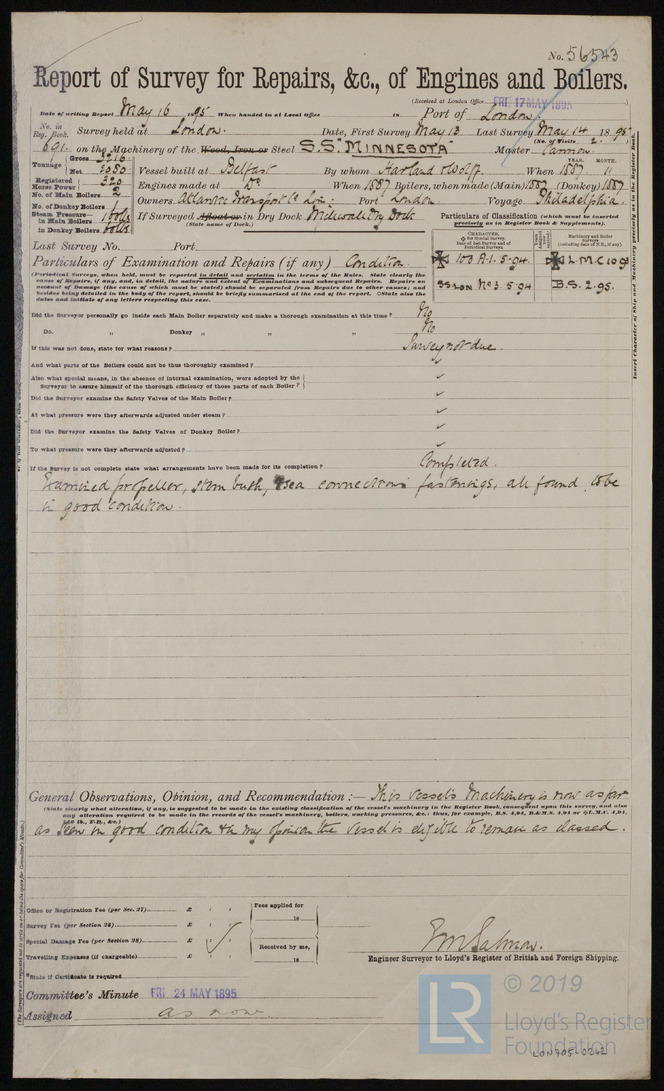 No. 56543
Report of Survey for Repairs, &c., of Engines and Boilers.
(Received at London Office FRI 17 MAY 1895)
Date of writing Report May 16 1895 When handed in at Local Office 18 Port of London
No. in Reg. Book. Survey held at London. Date, First Survey May 13 Last Survey May 14 1895
(No. of Visits 2.)
691. on the Machinery of the Wood, Iron or Steel S.S. "MINNESOTA" Master Cannon
Tonnage Gross 3216 Net 2080 Vessel built at Belfast By whom Harland & Wolff. When YEAR. 1887 MONTH. 11
Registered Horse Power 320 Engines made at Do. When 1887 Boilers, when made (Main) 1887 (Donkey) 1887
No. of Main Boilers 2
No. of Donkey Boilers 1 Owners Atlantic Transport Co Lim: Port London Voyage Philadelphia.
Steam Pressure in Main Boilers
in Donkey Boilers
If Surveyed Afloat or in Dry Dock Millwall Dry Dock
(State name of Dock.)
Particulars of Classification (which must be inserted precisely as in Register Book & Supplements).
CHARACTER.
Machinery and Boiler Surveys
100 A.1. 5.94 L.M.C.
SS LON No 3. 5.94 B.S. 2.95.
Last Survey No. Port
Particulars of Examination and Repairs (if any) Condition
(Periodical Surveys, when held, must be reported in detail and seriatim in the terms of the Rules. State clearly the
cause of Repairs, if any, and, in detail, the nature and extent of Examinations and subsequent Repairs. Repairs on
account of Damage (the cause of which must be stated) should be separated from Repairs due to other causes; and
besides being detailed in the body of the report, should be briefly summarised at the end of the report. State also the
dates and initials of any letters respecting this case.)
Did the Surveyor personally go inside each Main Boiler separately and make a thorough examination at this time? No
Do. „ Donkey „ „ „ No
If this was not done, state for what reasons? Survey not due
And what parts of the Boilers could not be thus thoroughly examined?
Also what special means, in the absence of internal examination, were adopted by the
Surveyor to assure himself of the thorough efficiency of those parts of each Boiler?
Did the Surveyor examine the Safety Valves of the Main Boiler?
At what pressure were they afterwards adjusted under steam?
Did the Surveyor examine the Safety Valves of Donkey Boiler?
To what pressure were they afterwards adjusted?
If the Survey is not complete state what arrangements have been made for its completion? Completed.
Examined propeller, stern bush, sea connections fastenings, all found to be
in good condition.
General Observations, Opinion, and Recommendation:— This vessel's Machinery is now as far
(State clearly what alteration, if any, is suggested to be made in the existing classification of the vessel's machinery in the Register Book, consequent upon this survey, and also
any alteration required to be made in the records of the vessel's machinery, boilers, working pressures, &c.: thus, for example, B.S. 4,94, B.&M.S. 4,94 or L.M.C. 4,94,
as seen in good condition & in my opinion the vessel is eligible to remain as classed.
Office or Registration Fee (per Sec. 27) £ Fees applied for
Survey Fee (per Section 28) £ 18
Special Damage Fee (per Section 28) £ Received by me,
Travelling Expenses (if chargeable) £ 18
E M Salmon.
Engineer Surveyor to Lloyd's Register of British and Foreign Shipping.
*State if Certificate is required
Committee's Minute FRI 24 MAY 1895
Assigned as now
Insert Character of Ship and Machinery precisely as in the Register Book.
(The Surveyors are requested not to write on or below the space for Committee's Minute.)
© 2019
LR Lloyd's Register
Foundation
LON705-0262